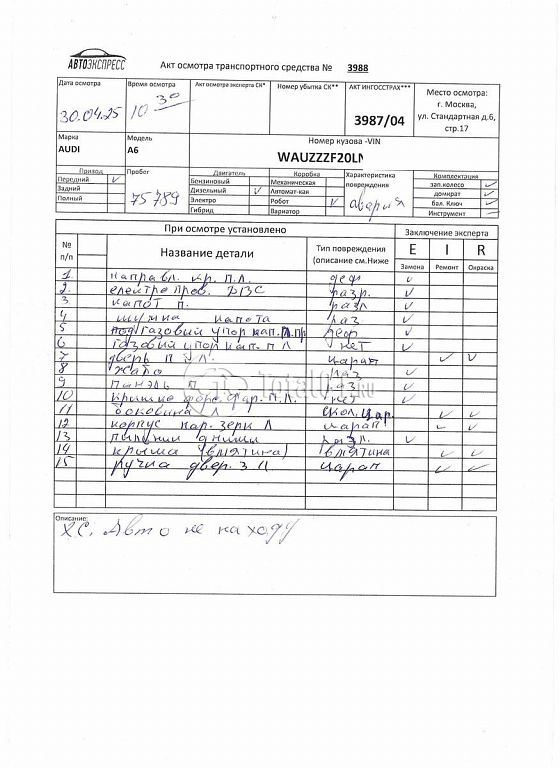 АВТОЭКСПРЕСС
Акт осмотра транспортного средства № 3988
Дата осмотра
30.04.25
Время осмотра
10 30
Акт осмотра эксперта СК*
Номер убытка СК**
АКТ ИНГОССТРАХ***
3987/04
Место осмотра:
г. Москва,
ул. Стандартная д.6,
стр.17
Марка
AUDI
Модель
A6
Номер кузова -VIN
WAUZZZF20LN
Привод
Передний V
Задний
Полный
Пробег
75789
Двигатель
Бензиновый
Дизельный V
Электро
Гибрид
Коробка
Механическая
Автомат-кая
Робот V
Вариатор
Характеристика
повреждения
авария
Комплектация
зап.колесо V
домкрат V
бал. Ключ V
Инструмент V
При осмотре установлено
Заключение эксперта
№ п/п
Название детали
Тип повреждения
(описание см.Ниже
E I R
Замена Ремонт Окраска
1 направл. кр. п.л. деф V
2 електро пров. ДВС разр. V
3 капот п. разл V
4 шумка капота раз V
5 газовий упор кап. п.пр деф V
6 газовий упор кап. п л нет V
7 дверь п л. царап V V
8 жабо раз V
9 панэль п раз V
10 кришка форс. фар. п.л. нет V
11 боковина л скол.цар. V V
12 корпус нар. зерк л царап V V
13 пильник днищи разл. V
14 крыша (вмятина) вмятина V V
15 ручка двер. з л царап V V
TotalCar.ru
Описание:
Х.С. Авто не на ходу